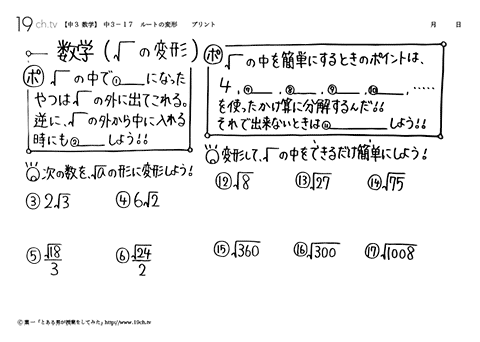 19ch.tv 【中3 数学】 中3-17 ルートの変形 プリント 月 日
数学 (√ の変形)
ポ √ の中で①____になった
やつは√ の外に出てこれる。
逆に、√ の外から中に入れる
時にも②____しよう!!
ポ √ の中を簡単にするときのポイントは、
4, ⑦____, ⑧____, ⑨____, ⑩____, .....
を使ったかけ算に分解するんだ!!
それで出来ないときは⑪________しよう!!
次の数を、√a の形に変形しよう!
③ 2√3 ④ 6√2
⑤ √18/3 ⑥ √24/2
変形して、√ の中をできるだけ簡単にしよう!
⑫ √8 ⑬ √27 ⑭ √75
⑮ √360 ⑯ √300 ⑰ √1008
© 葉一「とある男が授業をしてみた」http://www.19ch.tv